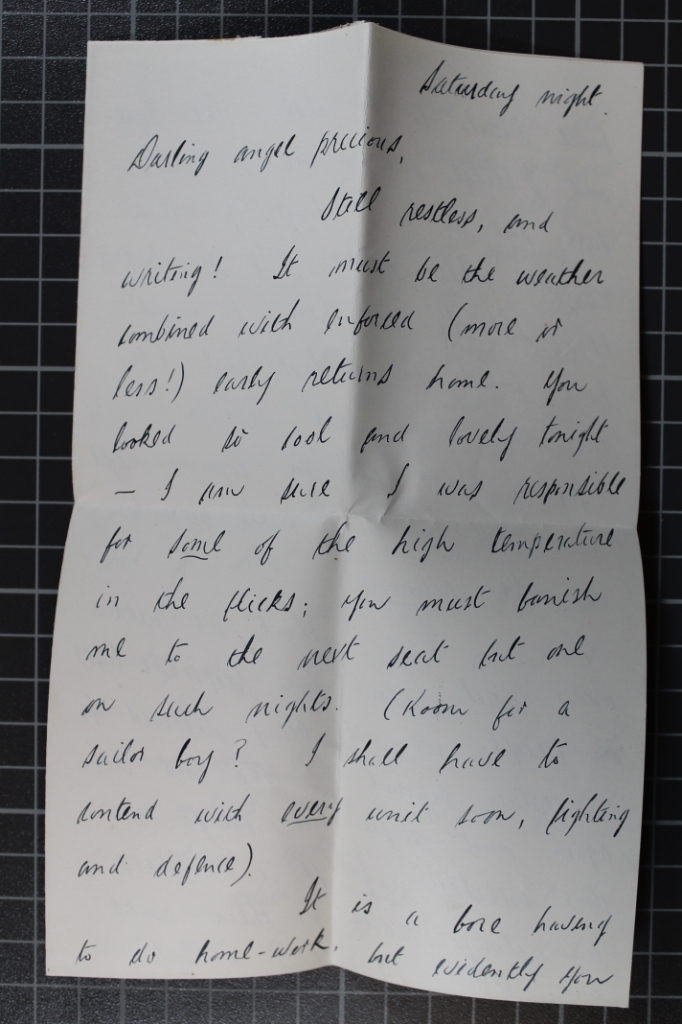 Saturday night.
Darling angel precious,
Still restless, and
writing! It must be the weather
combined with enforced (more or
less!) early returns home. You
looked so cool and lovely tonight
— I am sure I was responsible
for some of the high temperature
in the flicks; you must banish
me to the next seat but one
on such nights. (Room for a
sailor boy? I shall have to
contend with every unit soon, fighting
and defence).
It is a bore having
to do home-work, but evidently you